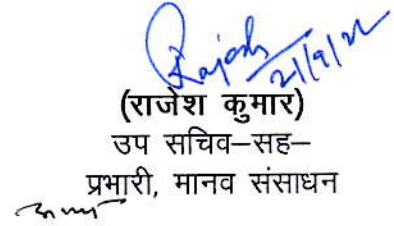 Rajesh
21/9/22
(राजेश कुमार)
उप सचिव–सह–
प्रभारी, मानव संसाधन